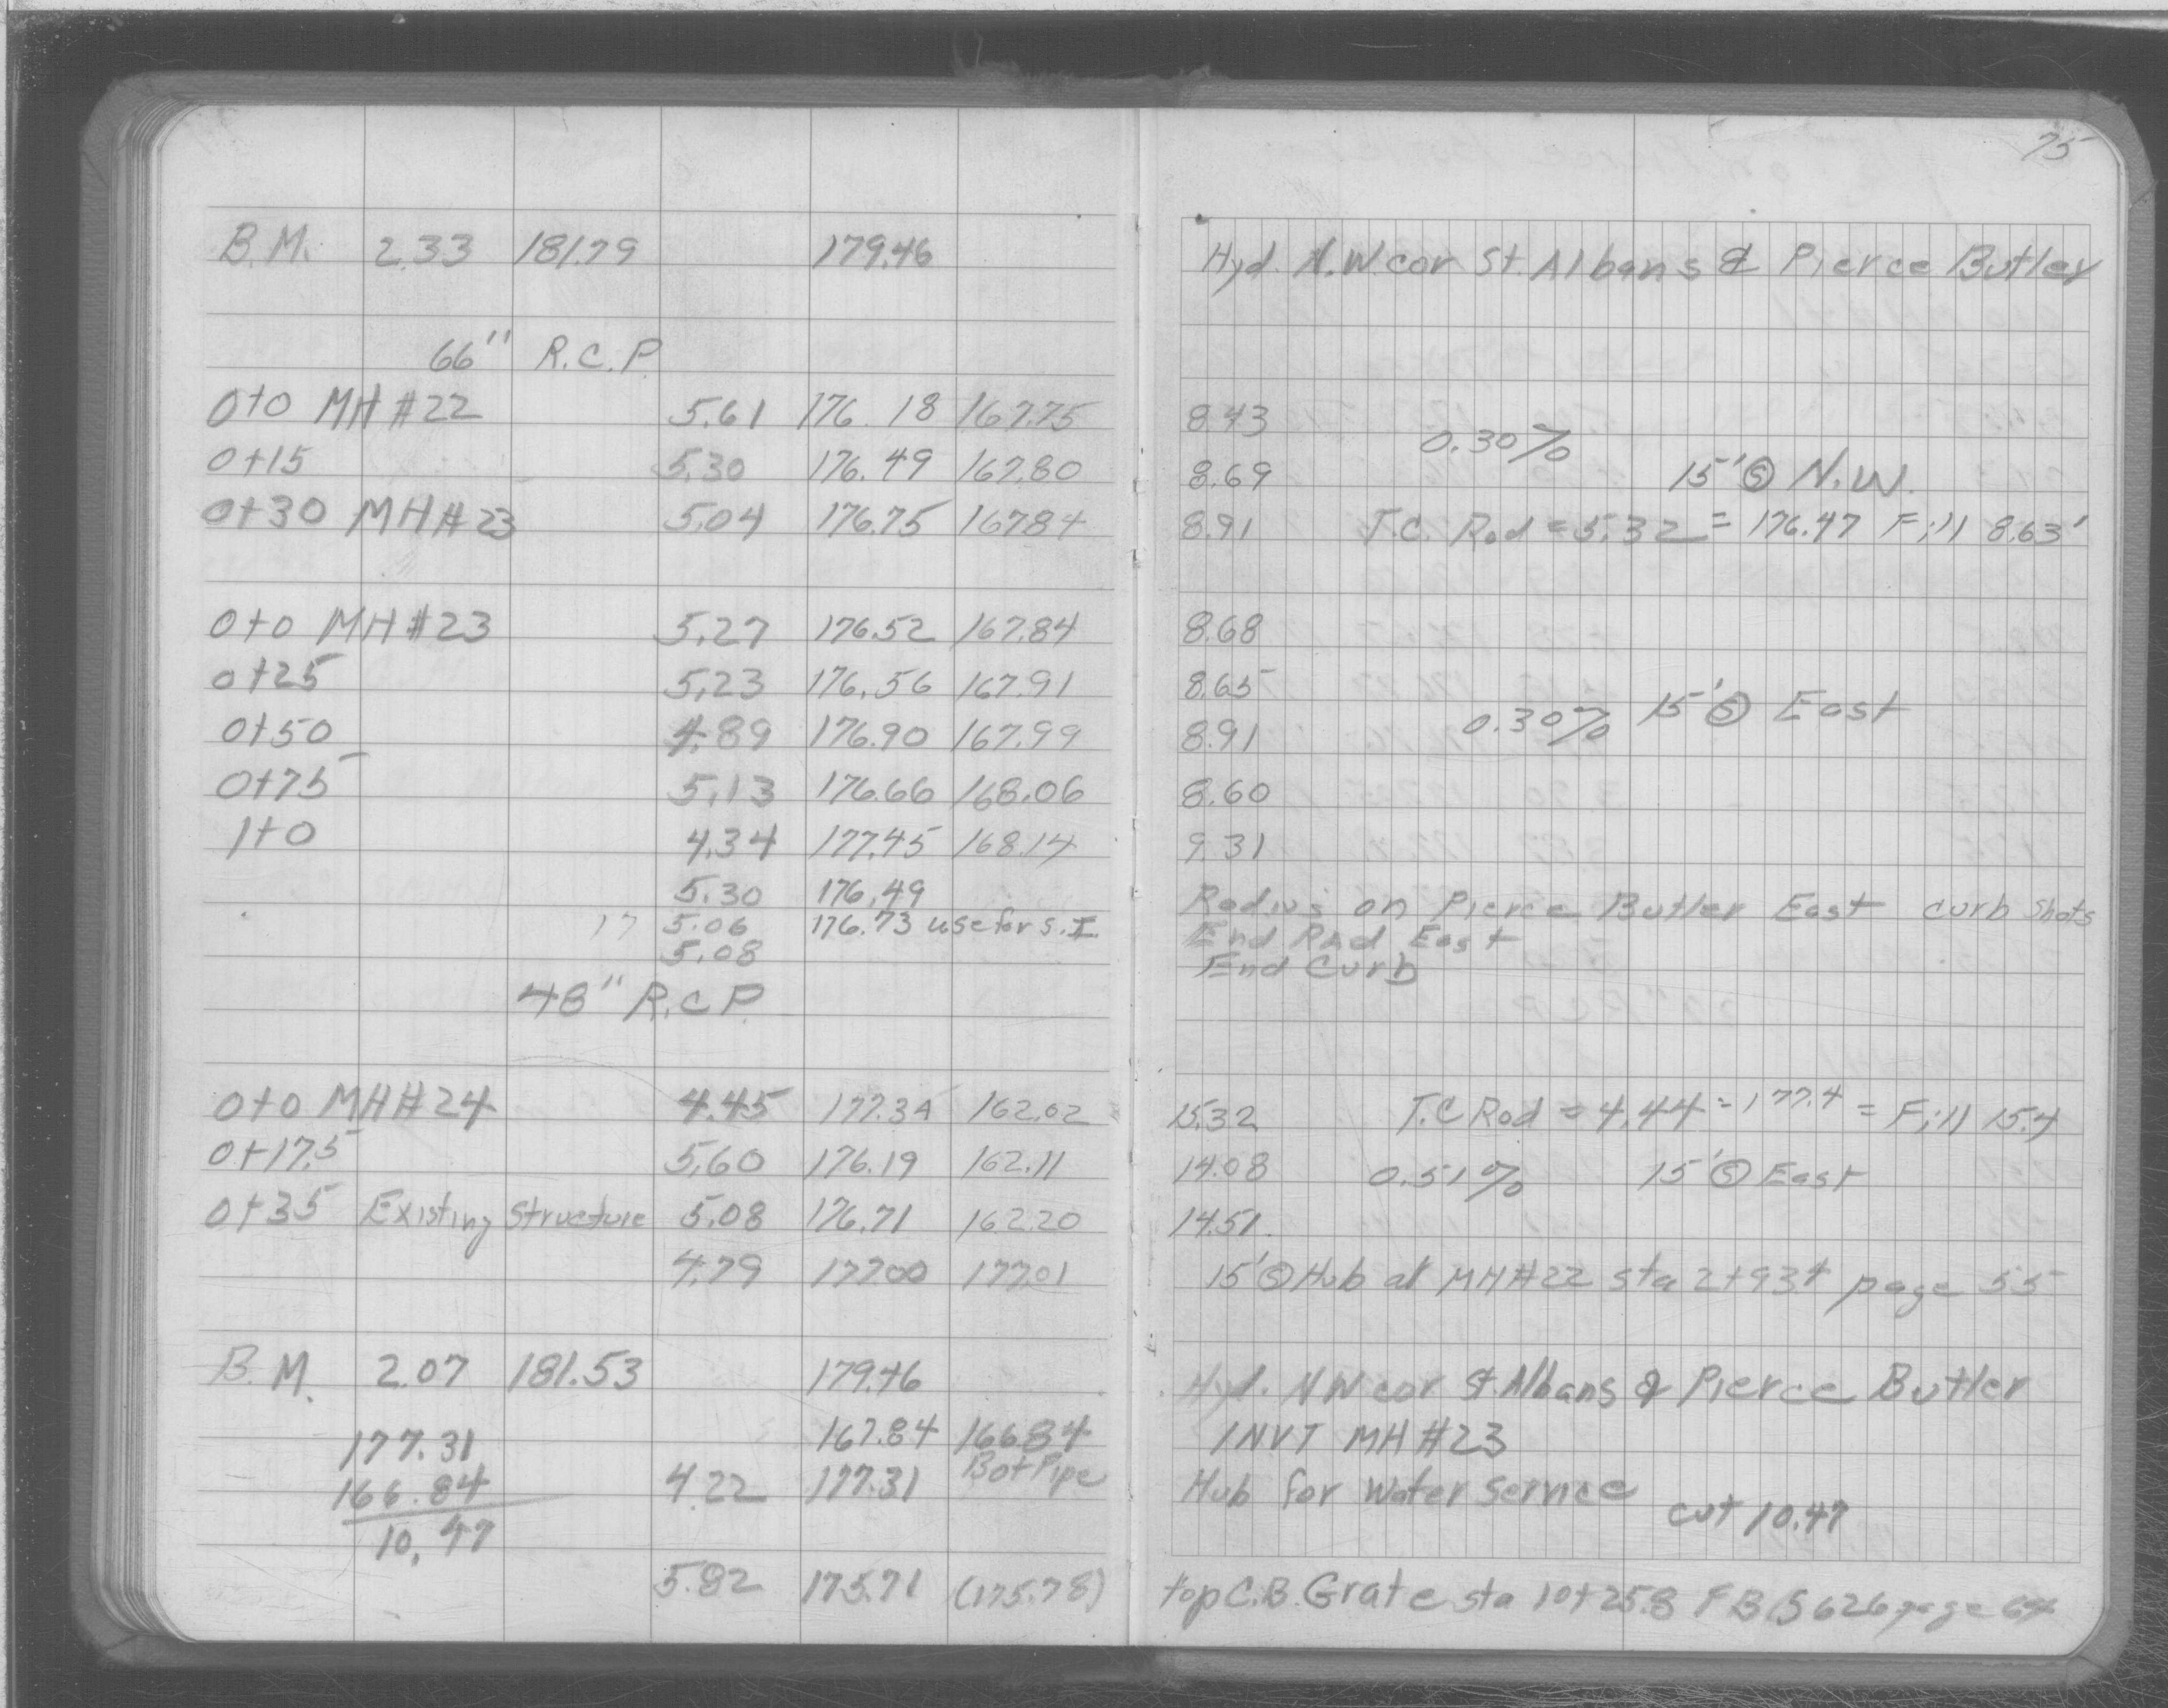 75
B.M. 2.33 181.79 179.46 Hyd. N.W. cor St. Albans & Pierce Butler
66" R.C.P.
0+0 MH #22 5.61 176.18 167.75 8.43
0.30%
0+15 5.30 176.49 167.80 8.69 15' Ⓢ N.W.
0+30 MH #23 5.04 176.75 167.84 8.91 T.C. Rod = 5.32 = 176.47 Fill 8.63'
0+0 MH #23 5.27 176.52 167.84 8.68
0+25 5.23 176.56 167.91 8.65
0+50 4.89 176.90 167.99 8.91 0.30% 15' Ⓢ East
0+75 5.13 176.66 168.06 8.60
1+0 4.34 177.45 168.14 9.31
5.30 176.49 Radius on Pierce Butler East curb shots
17 5.06 176.73 use for S.I. End Rad East
5.08 End Curb
48" R.C.P.
0+0 MH #24 4.45 177.34 162.02 15.32 T.C Rod = 4.44 = 177.4 = Fill 15.4
0+17.5 5.60 176.19 162.11 14.08 0.51% 15' Ⓢ East
0+35 Existing Structure 5.08 176.71 162.20 14.51
4.79 177.00 177.01 15' Ⓢ Hub at MH #22 sta 2+93+ page 55
B.M. 2.07 181.53 179.46 Hyd. NW cor St. Albans & Pierce Butler
177.31 167.84 166.84 INVT MH #23
Bot Pipe
166.84 4.22 177.31 Hub for Water Service cut 10.47
10.47
5.82 175.71 (175.78) top C.B. Grate sta 10+25.8 FB 5626 page 64